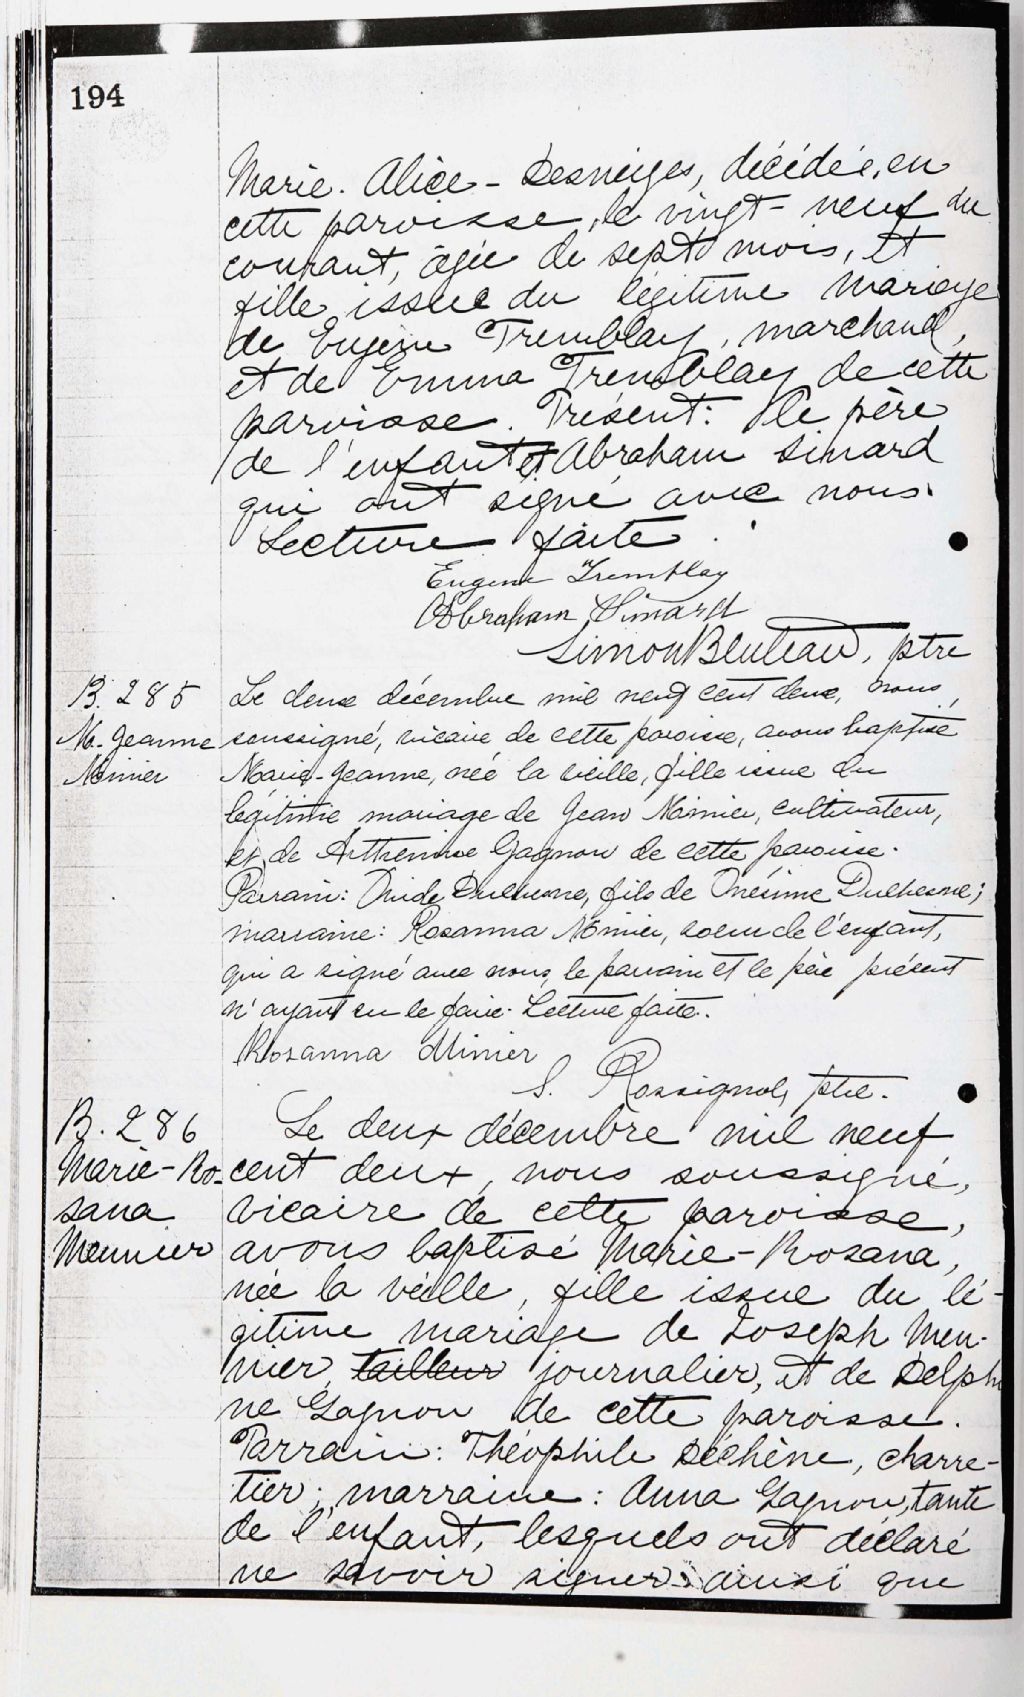 194
Marie. Alice - Desneiges, décédée, en
cette paroisse, le vingt-neuf du
courant, âgée de sept mois, et
fille issue du légitime mariage
de Eugène Tremblay, marchand,
et de Emma Tremblay de cette
paroisse. Présent: le père
de l'enfant et Abraham Simard
qui ont signé avec nous.
Lecture faite.
Eugene Tremblay
Abraham Simard
Simon Bluteau, ptre
B. 285
M.-Jeanne
Minier
Le deux décembre mil neuf cent deux, nous,
soussigné, vicaire de cette paroisse, avons baptisé
Marie-Jeanne, née la veille, fille issue du
légitime mariage de Jean Minier, cultivateur,
et de Arthémise Gagnon de cette paroisse.
Parrain: Ovide Duchesne, fils de Onésime Duchesne;
marraine: Rosanna Minier, soeur de l'enfant,
qui a signé avec nous, le parrain et le père présent
n'ayant su le faire. Lecture faite.
Rosanna Minier
S. Rossignol, ptre.
B. 286
Marie-Ro-
sana
Meunier
Le deux décembre mil neuf
cent deux, nous soussigné,
vicaire de cette paroisse,
avons baptisé Marie-Rosana,
née la veille, fille issue du lé-
gitime mariage de Joseph Meu-
nier, tailleur journalier, et de Delphi
ne Gagnon de cette paroisse.
Parrain: Théophile Déchêne, charre-
tier; marraine: Anna Gagnon, tante
de l'enfant, lesquels ont déclaré
ne savoir signer ainsi que